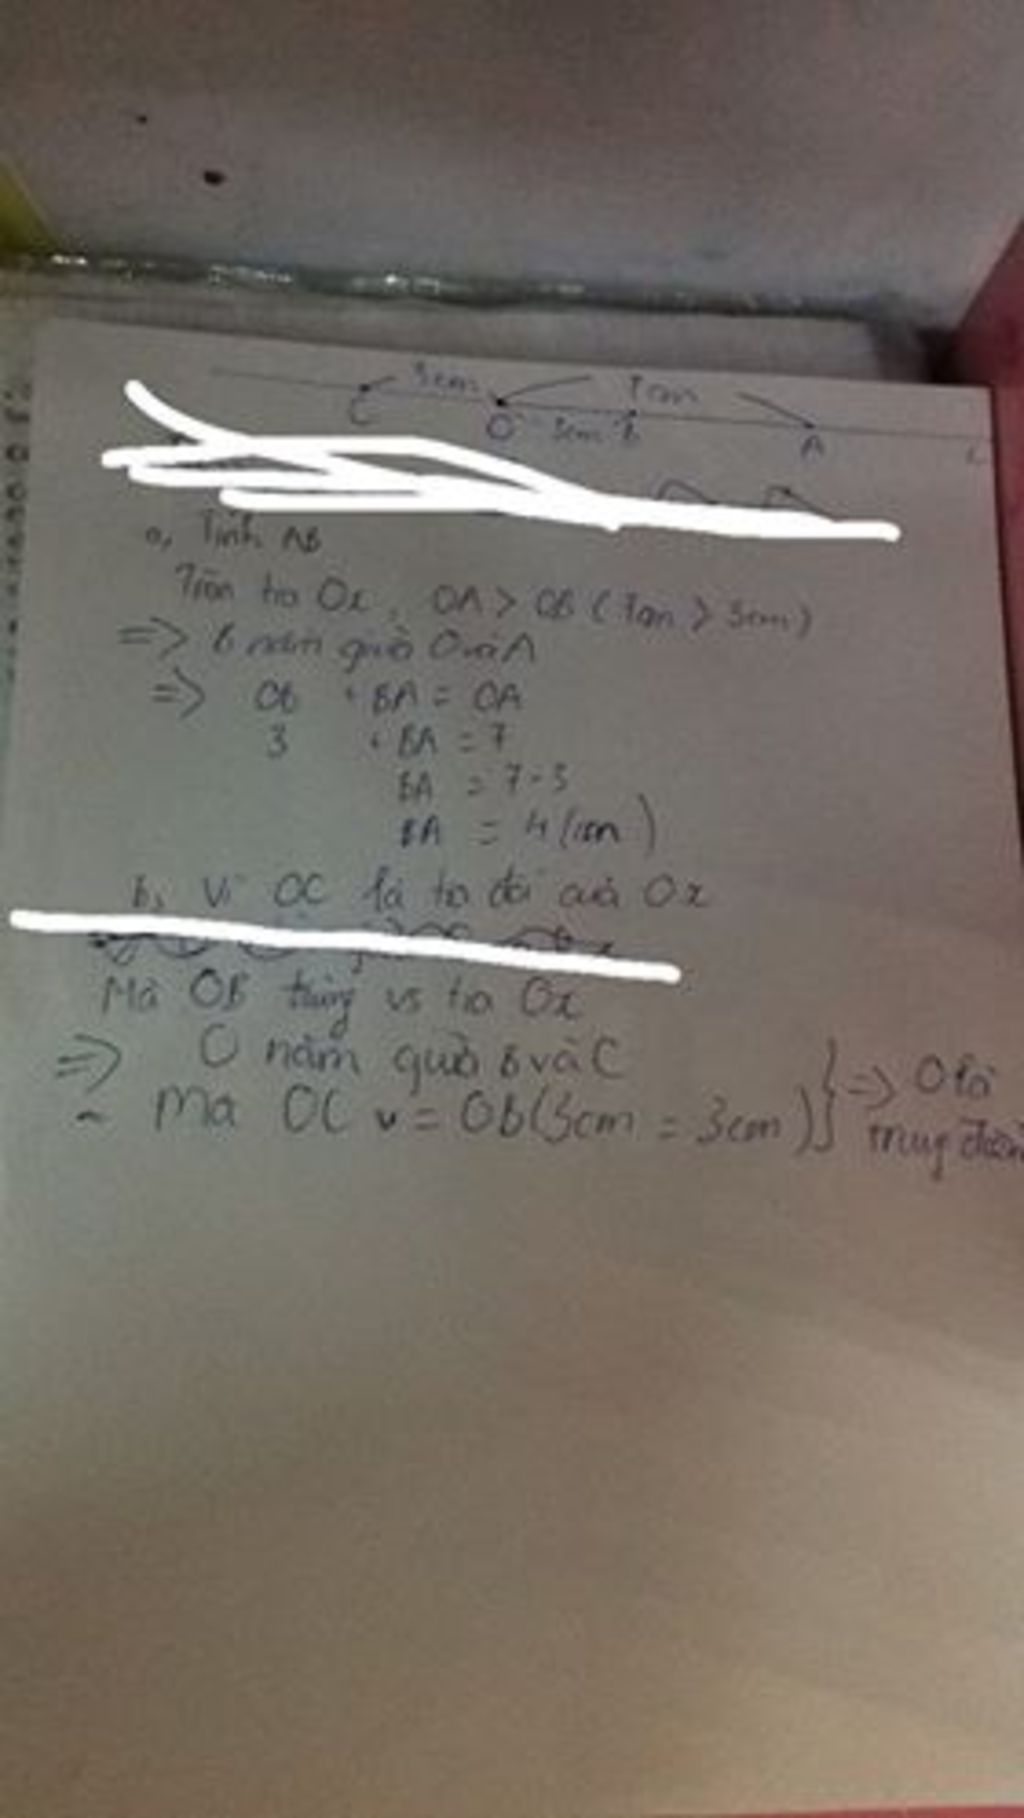 3cm 7cm
C O 3cm B A
a, Tính AB
Trên tia Ox, OA > OB (7cm > 3cm)
=> B nằm giữa O và A
=> OB + BA = OA
3 + BA = 7
BA = 7-3
BA = 4 (cm)
b, Vì OC là tia đối của Ox
Mà OB trùng vs tia Ox
=> O nằm giữa B và C
- Mà OC = OB (3cm = 3cm) } => O là
trung điểm